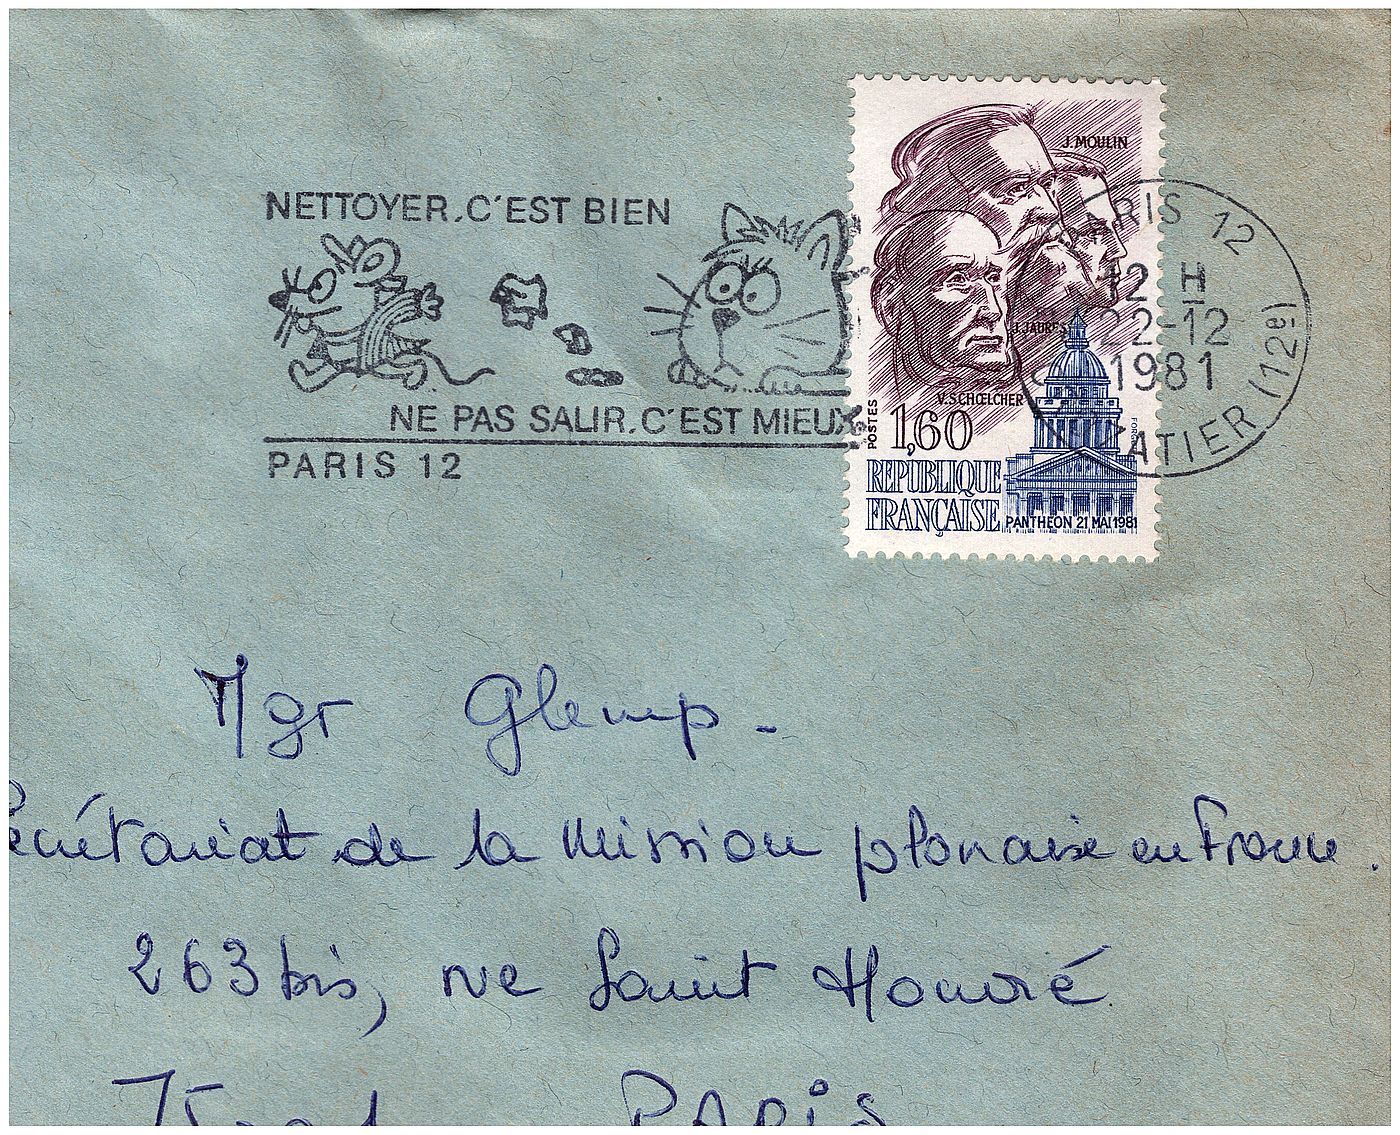 NETTOYER.C'EST BIEN
NE PAS SALIR.C'EST MIEUX
PARIS 12
J. MOULIN
J. JAURES
V. SCHŒLCHER
POSTES
1,60
REPUBLIQUE
FRANÇAISE
PANTHEON 21 MAI 1981
RIS 12
12 H
22-12
1981
ATIER (12e)
Mgr Glemp -
Secrétariat de la Mission plonaise en France.
263 bis, rue Saint Honoré
PARIS